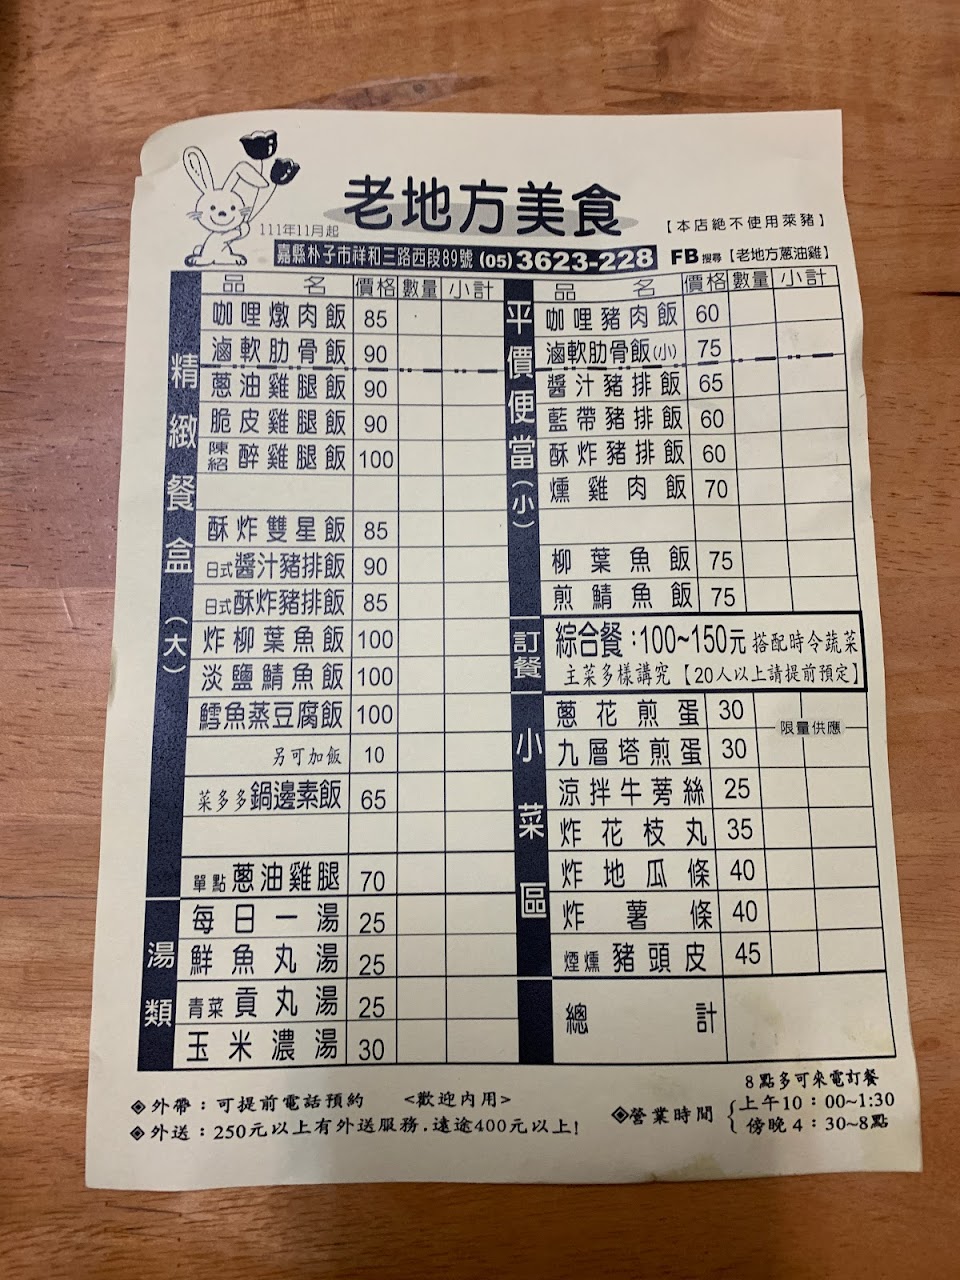 老地方美食
111年11月起
【本店絕不使用萊豬】
嘉縣朴子市祥和三路西段89號 (05)3623-228
FB 搜尋【老地方蔥油雞】
精緻餐盒(大)
品名 價格 數量 小計
咖哩燉肉飯 85
滷軟肋骨飯 90
蔥油雞腿飯 90
脆皮雞腿飯 90
陳紹醉雞腿飯 100
酥炸雙星飯 85
日式醬汁豬排飯 90
日式酥炸豬排飯 85
炸柳葉魚飯 100
淡鹽鯖魚飯 100
鱈魚蒸豆腐飯 100
另可加飯 10
菜多多鍋邊素飯 65
單點蔥油雞腿 70
湯類
每日一湯 25
鮮魚丸湯 25
青菜貢丸湯 25
玉米濃湯 30
平價便當(小)
品名 價格 數量 小計
咖哩豬肉飯 60
滷軟肋骨飯(小) 75
醬汁豬排飯 65
藍帶豬排飯 60
酥炸豬排飯 60
燻雞肉飯 70
柳葉魚飯 75
煎鯖魚飯 75
訂餐
綜合餐:100~150元 搭配時令蔬菜
主菜多樣講究【20人以上請提前預定】
小菜區
蔥花煎蛋 30
限量供應
九層塔煎蛋 30
涼拌牛蒡絲 25
炸花枝丸 35
炸地瓜條 40
炸薯條 40
煙燻豬頭皮 45
總計
◈外帶：可提前電話預約 <歡迎內用>
◈外送：250元以上有外送服務.遠途400元以上!
8點多可來電訂餐
◈營業時間 上午10：00~1:30
傍晚4：30~8點